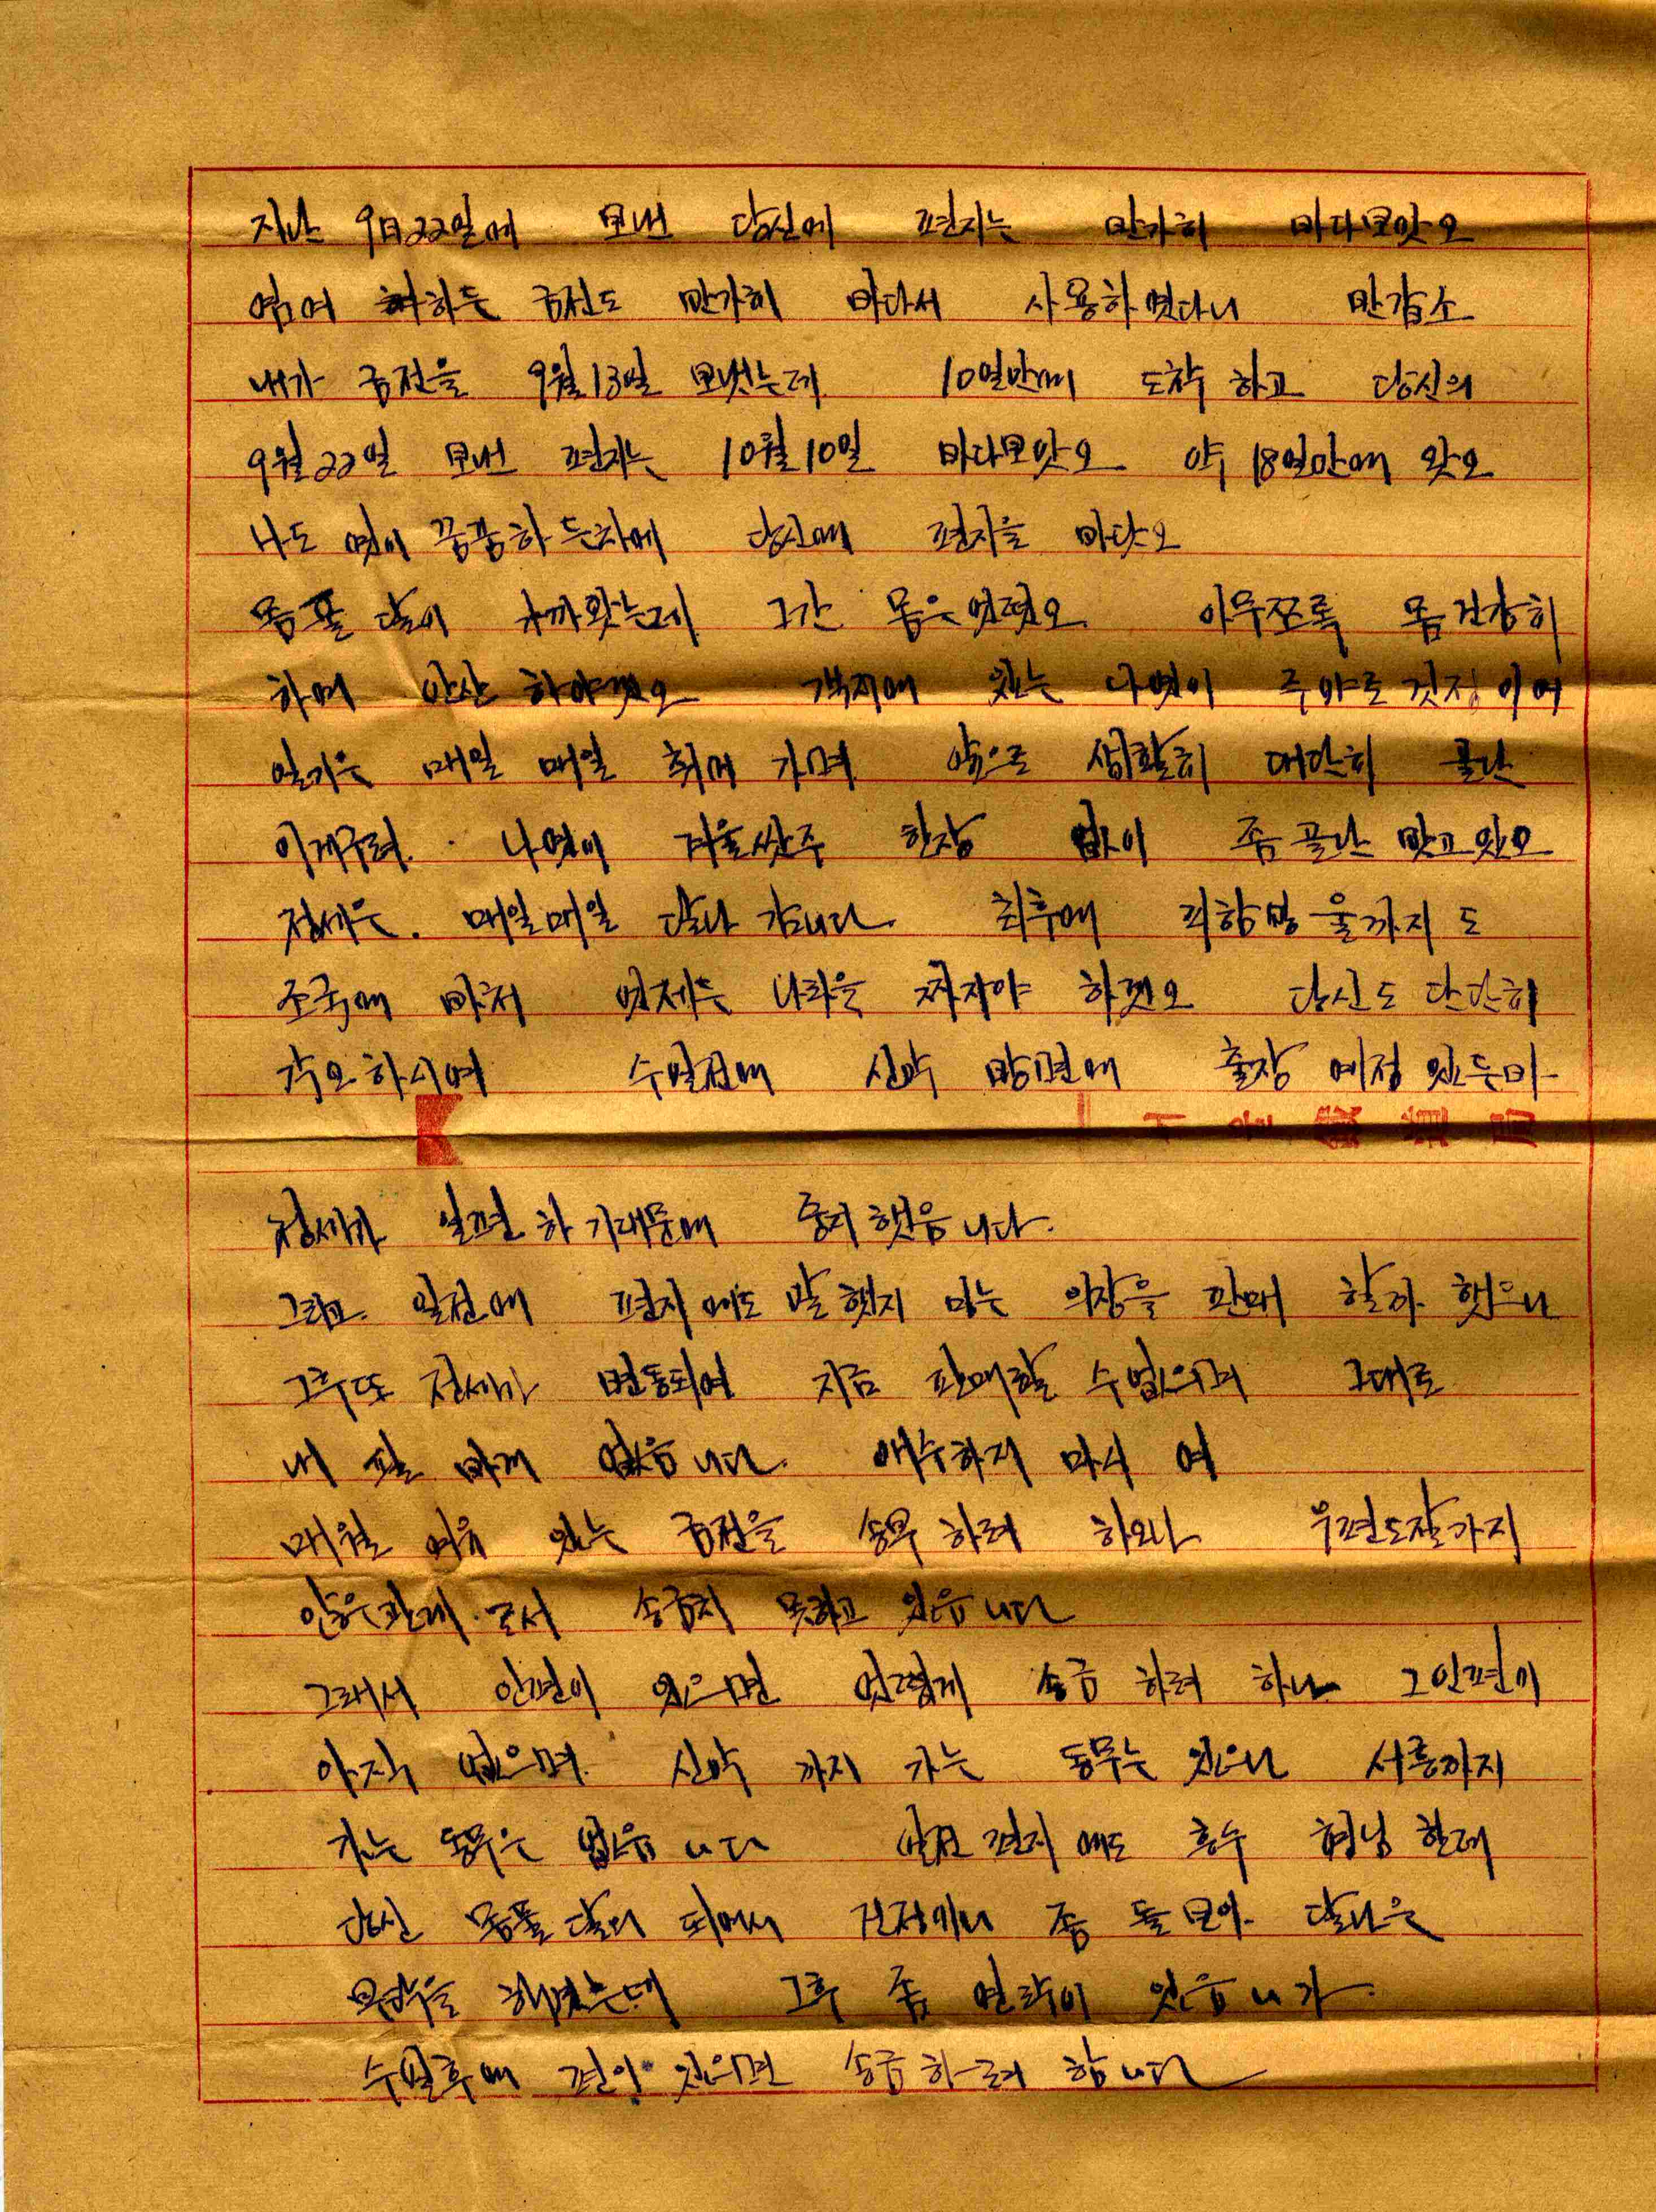 지난 9日22일에 보낸 당신에 편지는 반가히 바다보앗오
염여 하든 금전도 반가히 바다서 사용하엿다니 반갑소
내가 금전을 9월13일 보냇는데 10일만에 도착 하고 당신의
9월22일 보낸 편지는 10월10일 바다보앗오 약 18일만에 왓오
나도 역이 꿈꿈하든차에 당신에 편지을 바닷오
몸풀 달이 가까왓는데 그간 몸은 엇떳오 아무쪼록 몸건강히
하며 안산 하야겟오 객지에 있는 나역이 주야로 것정이여
일기은 매일 매일 취어 가며 앞으로 생활히 대단히 골난
이게구려. 나역이 겨울 한장 없이 좀 골난 맛고있오
정세은. 매일매일 달나 감니다 최후에 피한방울까지도
조국에 바처 언제든 나라을 차자야 하겟오 당신도 단단히
각오하시여 수일전에 신막 방면에 출장 예정 있든바
정세가 일편 하기대문에 중지 했음니다.
그리고 일전에 편지에도 말했지 만는 의장을 판매 할까 했으나
그후또 정세가 변동되여 지금 판매할 수없으며 그대로
내 바께 없음니다. 애수하지 마시 여
매월 여유 있는 금전을 송부 하려 하오나 우편도잘가지
안은관게로서 송금치 못하고 있음니다
그래서 인편이 있으면 엇떻게 송금 하려 하나 그인편이
아직 없으며 신막 까지 가는 동무는 있으나 서흥까지
가는 동무은 없음니다 일전 편지에도 흥수 형님 한데
당신 몸풀달이 되여서 걱정이니 좀 돌보아 달나은
부탁을 하였는데 그후 좀 연락이 있음니가.
수일후에 편이 있으면 송금하려 합니다